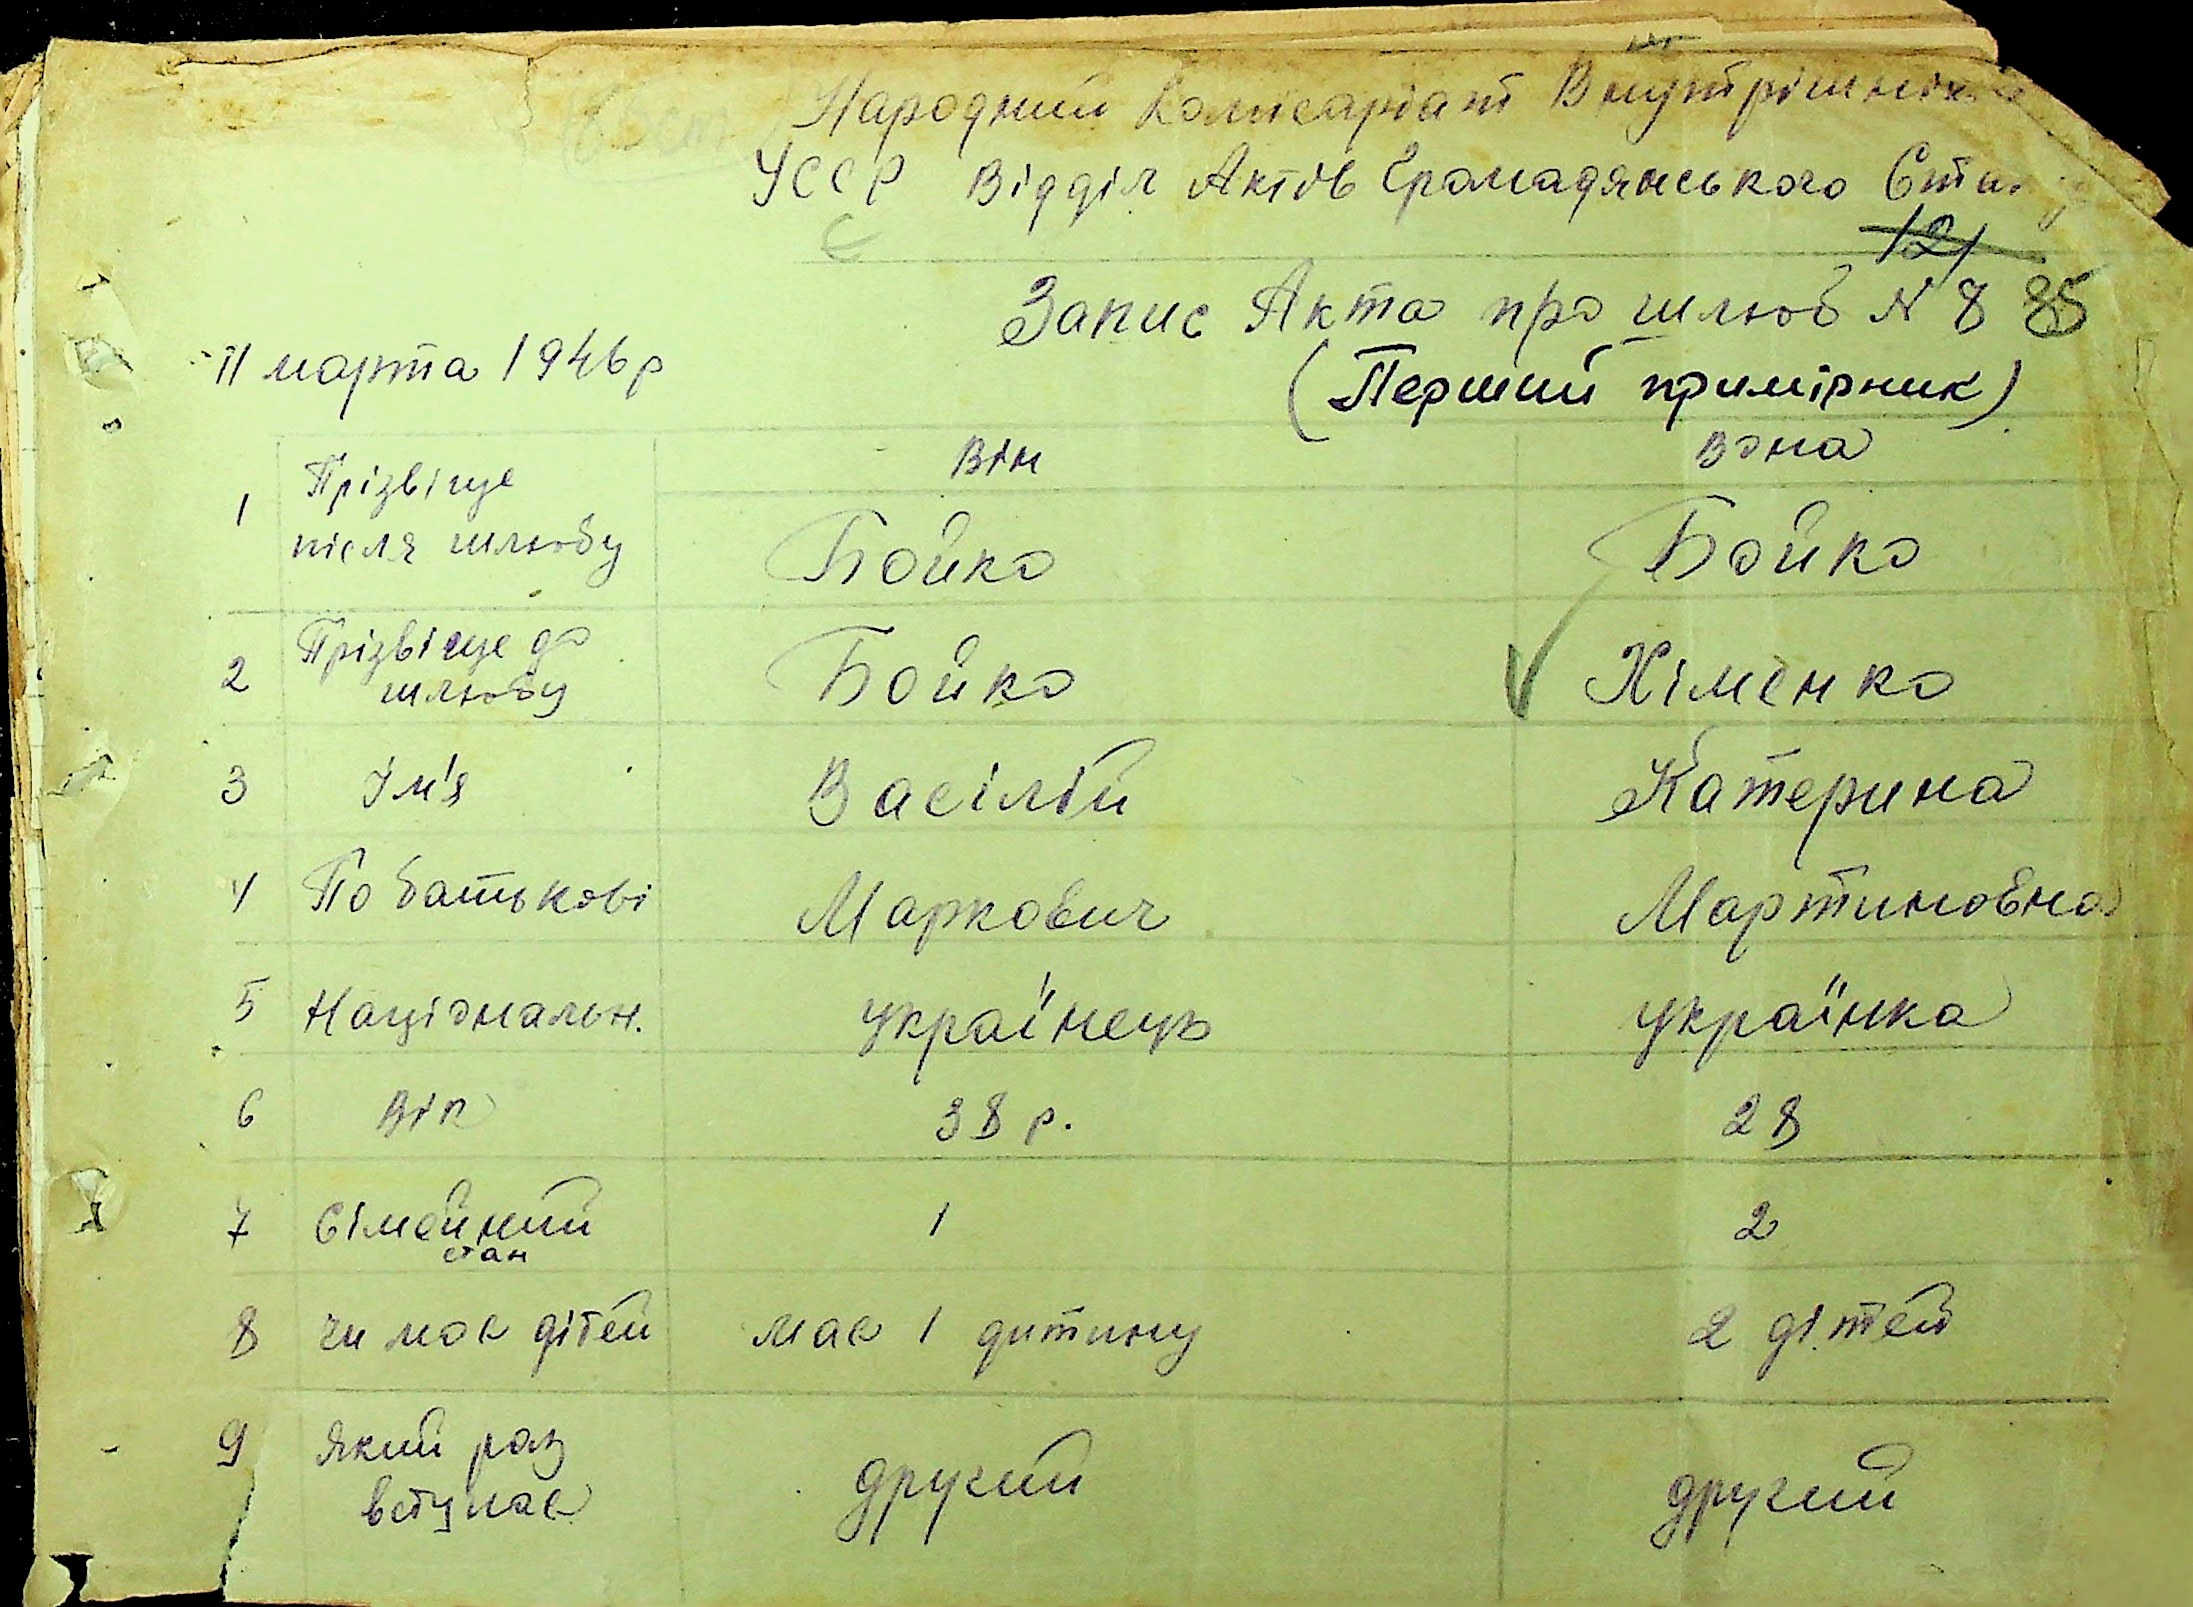 Народний Комісаріат Внутрішніх
УССР Відділ Актів Громадянського
121
Запис Акта про шлюб N 8 85
11 марта 1946 р
(Перший примірник)
Він Вона
1 Прізвіще після шлюбу Бойко Бойко
2 Прізвіще до шлюбу Бойко Хіменко
3 Ім'я Васілій Катерина
4 По батькові Маркович Мартиновна
5 Національн. українець українка
6 Вік 38 р. 28
7 Сімейний стан 1 2
8 Чи має дітей має 1 дитину 2 дітей
9 Який раз вступає другий другий